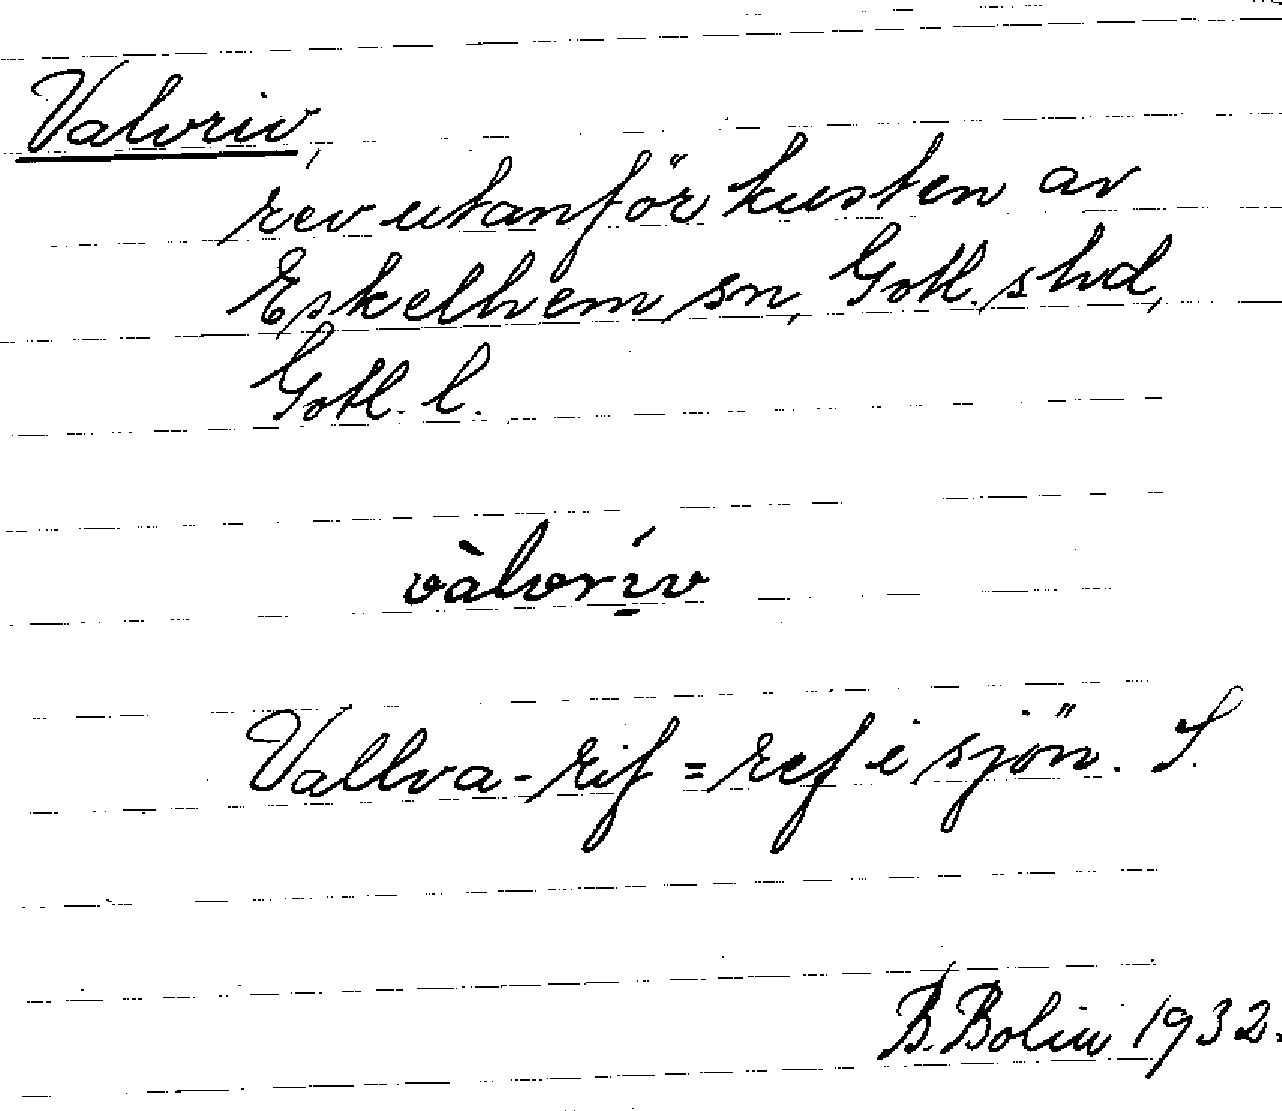 Valvriv,
rev utanför kusten av
Eskelhem sn, Gotl. s hd,
Gotl. l.
vàlvrív
Vallva-rif = ref i sjön. S.
B. Bolin 1932.